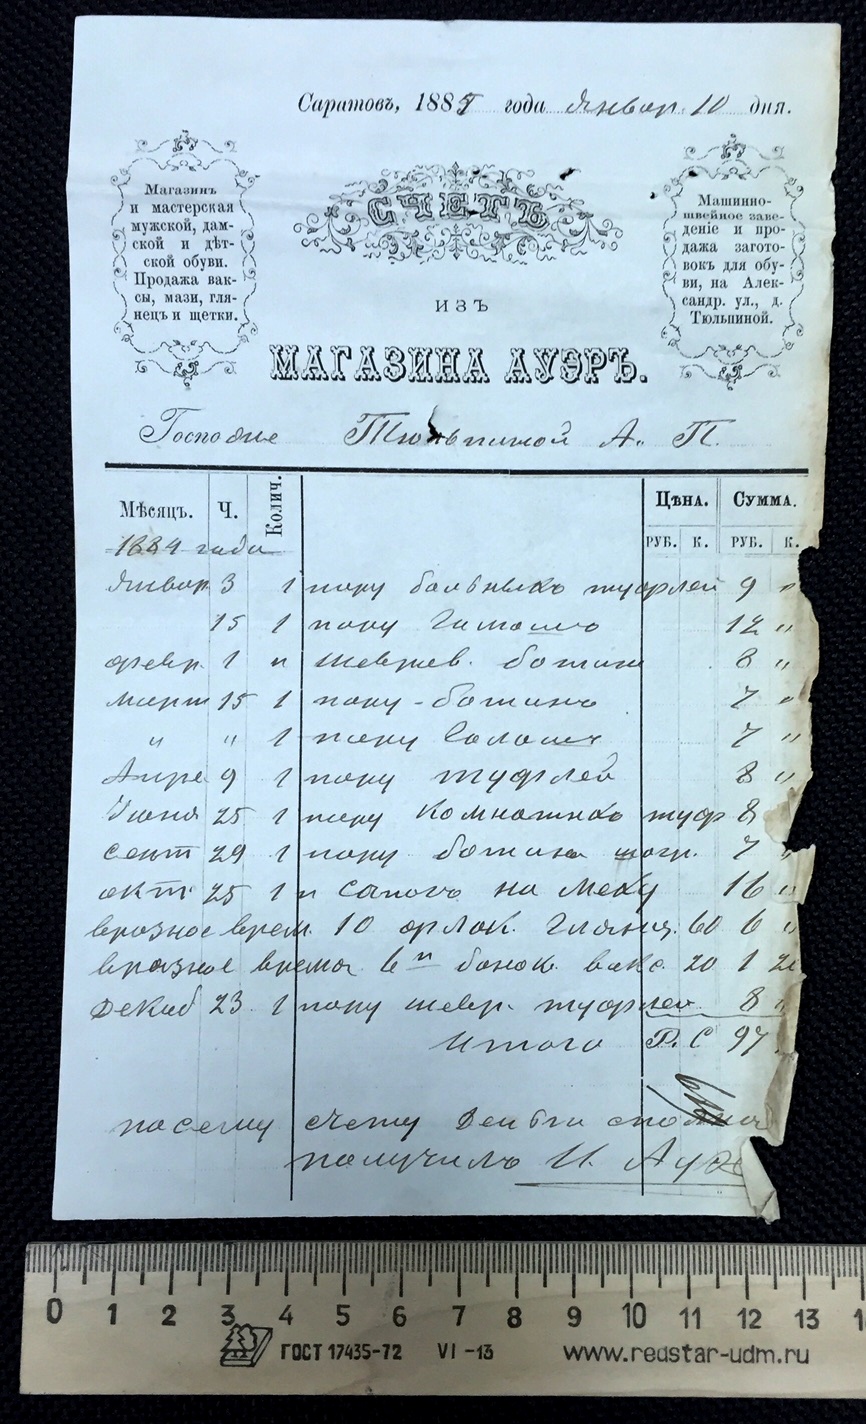 Саратовъ, 1885 года Январ. 10 дня.
Магазинъ
и мастерская
мужской, дам-
ской и дѣт-
ской обуви.
Продажа вак-
сы, мази, гля-
нецъ и щетки.
СЧЕТЪ
ИЗЪ
МАГАЗИНА АУЭРЪ.
Машинно-
швейное заве-
деніе и про-
дажа загото-
вокъ для обу-
ви, на Алек-
сандр. ул., д.
Тюльпиной.
Госпоже Тюльпиной А. П.
Мѣсяцъ. Ч. Колич. Цѣна. Сумма.
РУБ. К. РУБ. К.
1884 года
Январ 3 1 пару туфлей 9 "
15 1 пару 12 "
февр. 1 п шеврев. ботин 8 "
март 15 1 пару ботинъ 7 "
" " 1 пару 7 "
Апре 9 1 пару туфлей 8 "
Июня 25 1 пару комнатнхъ туф 8
сент 29 1 пару ботинъ шагр. 7 "
окт 25 1 п сапогъ на меху 16 "
вразное врем. 10 флак. глянц. 60 6 "
вразное время 6 банок. вакс. 20 1 2
Декаб 23 1 пару шевр. туфлей 8 "
Итого Р. С 97
по сему счету деньги сполна
получилъ И. Ауэ
0 1 2 3 4 5 6 7 8 9 10 11 12 13
ГОСТ 17435-72 VI -13 www.redstar-udm.ru